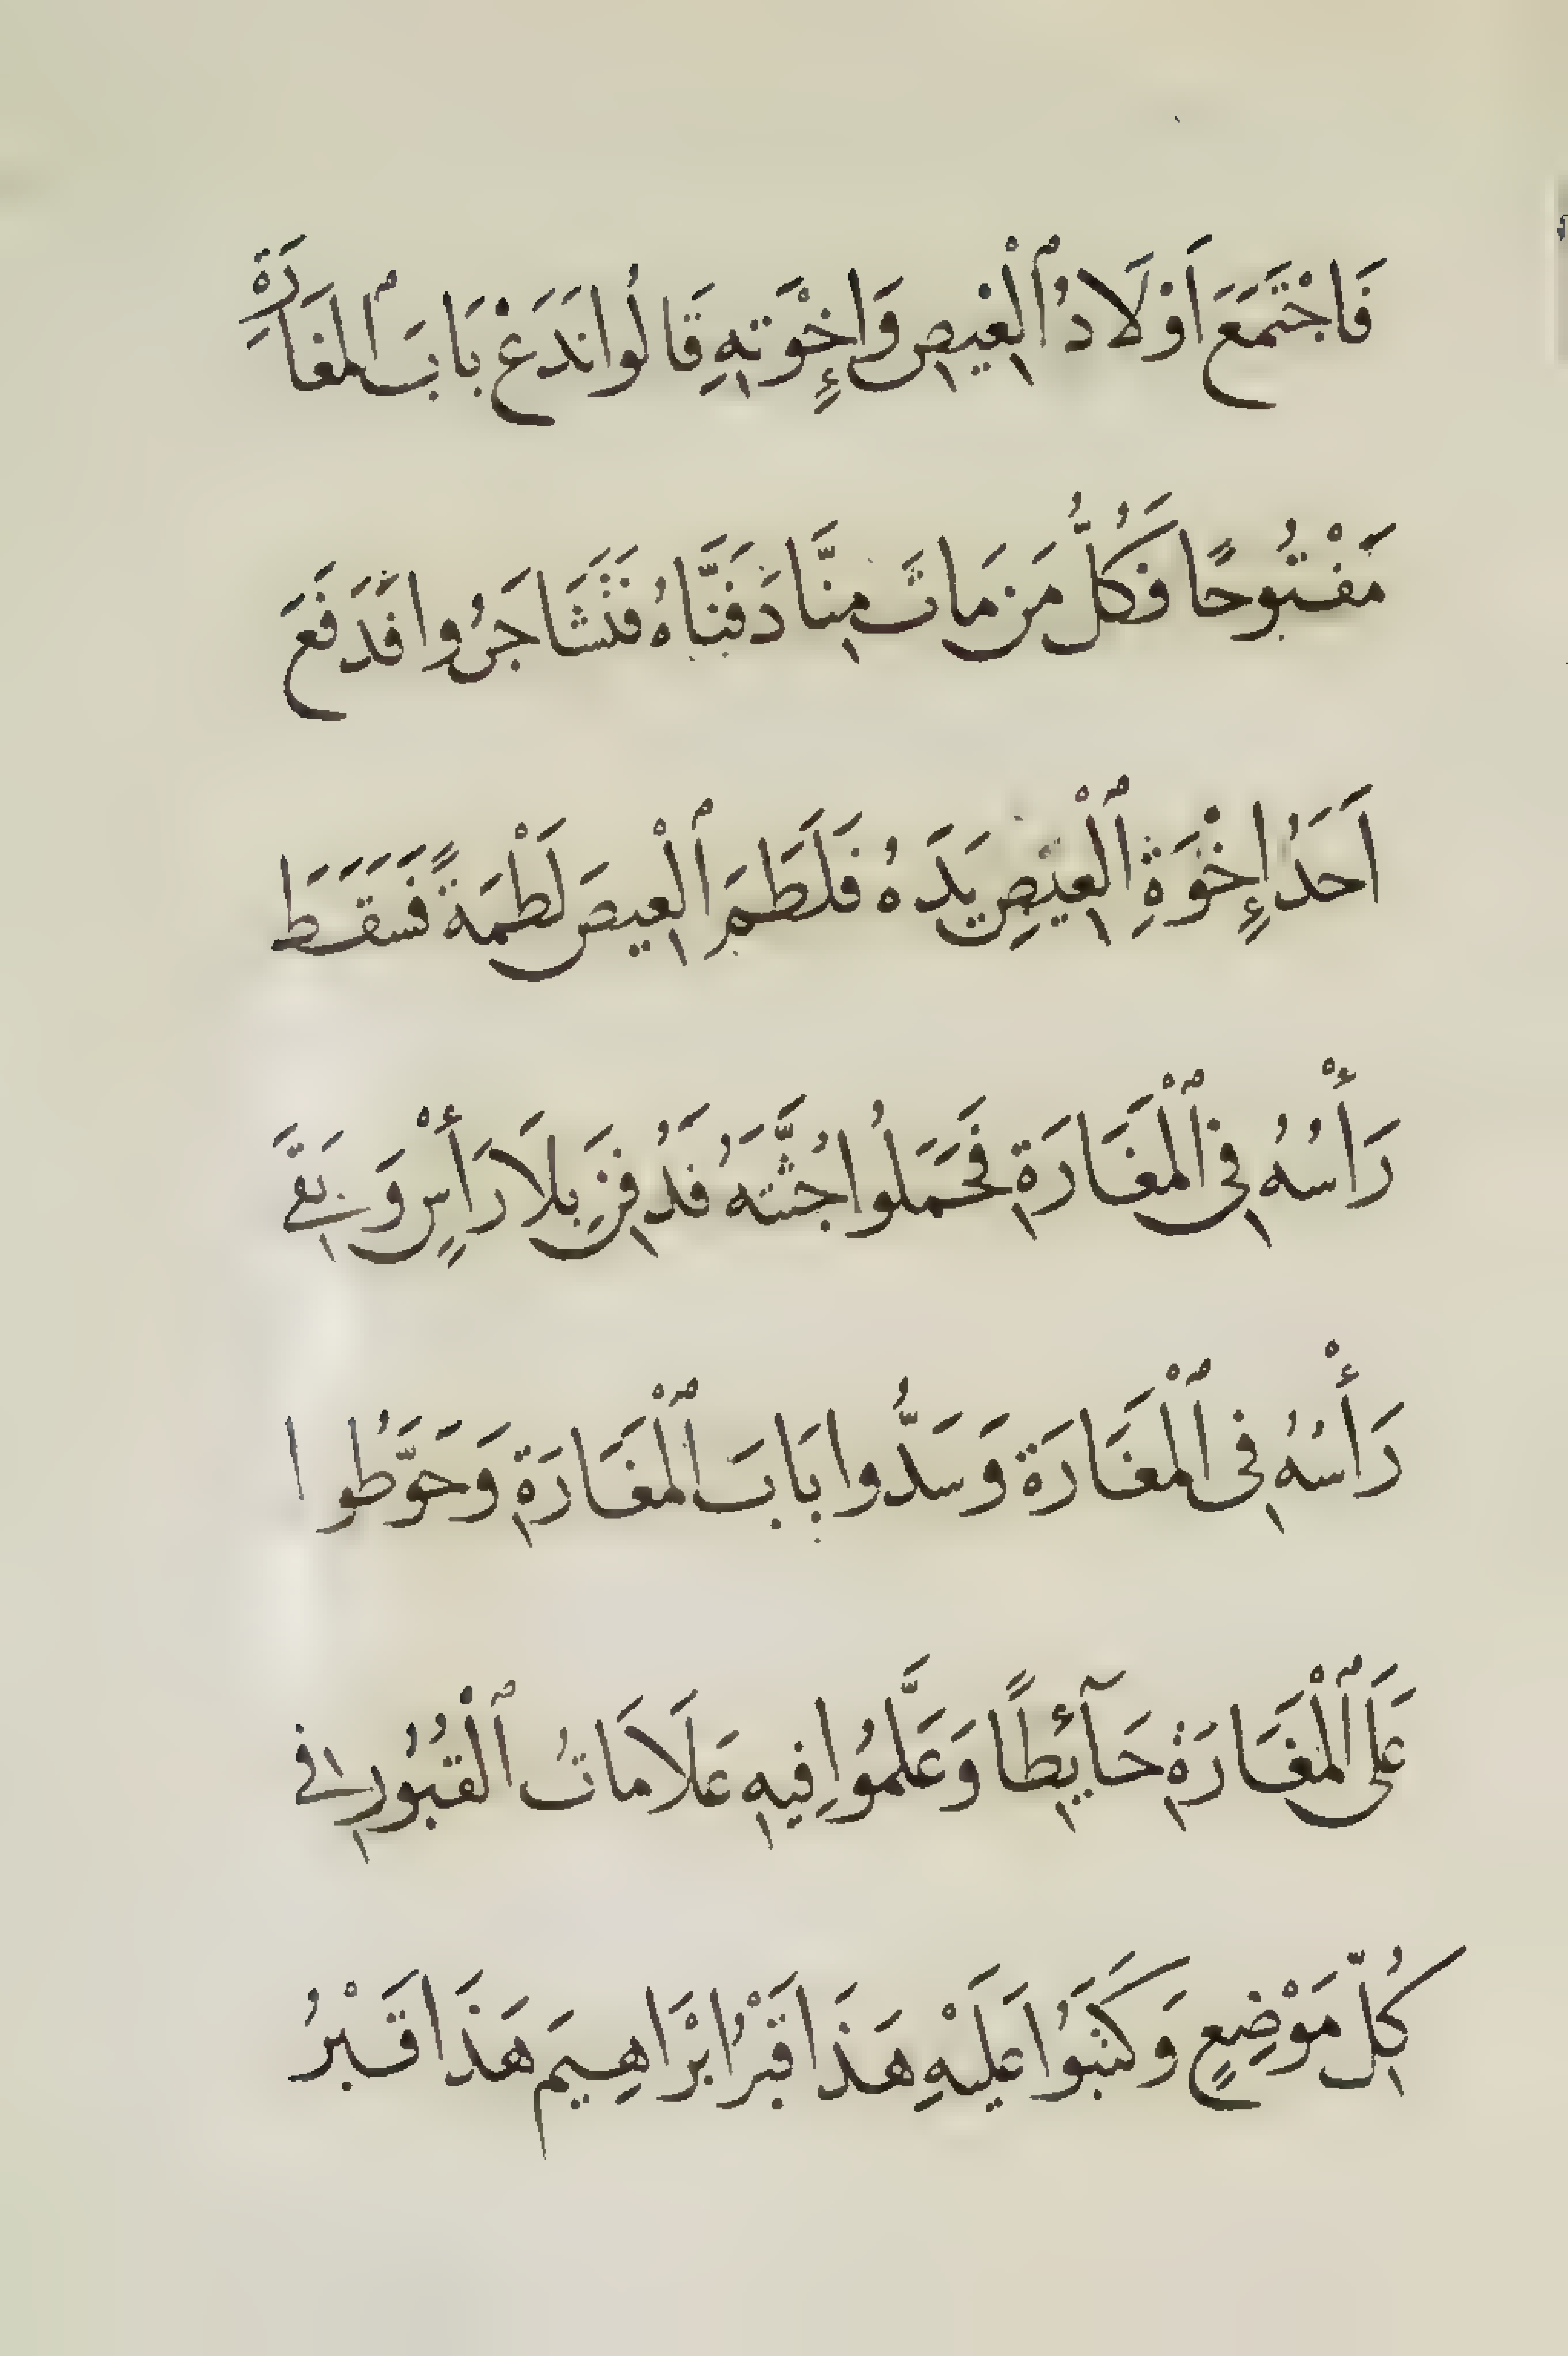 فَاجْتَمَعَ اَوْلَادُ ٱلْعِيصِ وَإِخْوَتِهِ قَالُوا نَدَعْ بَابَ ٱلمَغَارَةِ
مَفْتُوحًا فَكُلُّ مَن مَاتَ مِنَّا دَفَنَّاهُ فَتَشَاجَرُوا فَدَفَعَ
اَحَدُ إِخْوَةِ ٱلْعِيصِ يَدَهُ فَلَطَمَ ٱلْعِيصَ لَطْمَةً فَسَقَطَ
رَأْسُهُ فِي ٱلْمَغَارَةِ فَحَمَلُوا جُثَّتَهُ فَدُفِنَ بِلَا رَأْسٍ وَبَقِيَ
رَأْسُهُ فِي ٱلْمَغَارَةِ وَسَدُّوا بَابَ ٱلْمَغَارَةِ وَحَوَّطُوا
عَلَى ٱلْمَغَارَةِ حَآئِطًا وَعَلَّمُوا فِيهِ عَلَامَاتُ ٱلْقُبُورِ فِي
كُلِّ مَوْضِعٍ وَكَتَبُوا عَلَيْهِ هَذَا قَبْرُ ابْرَاهِيمَ هَذَا قَبْرُ